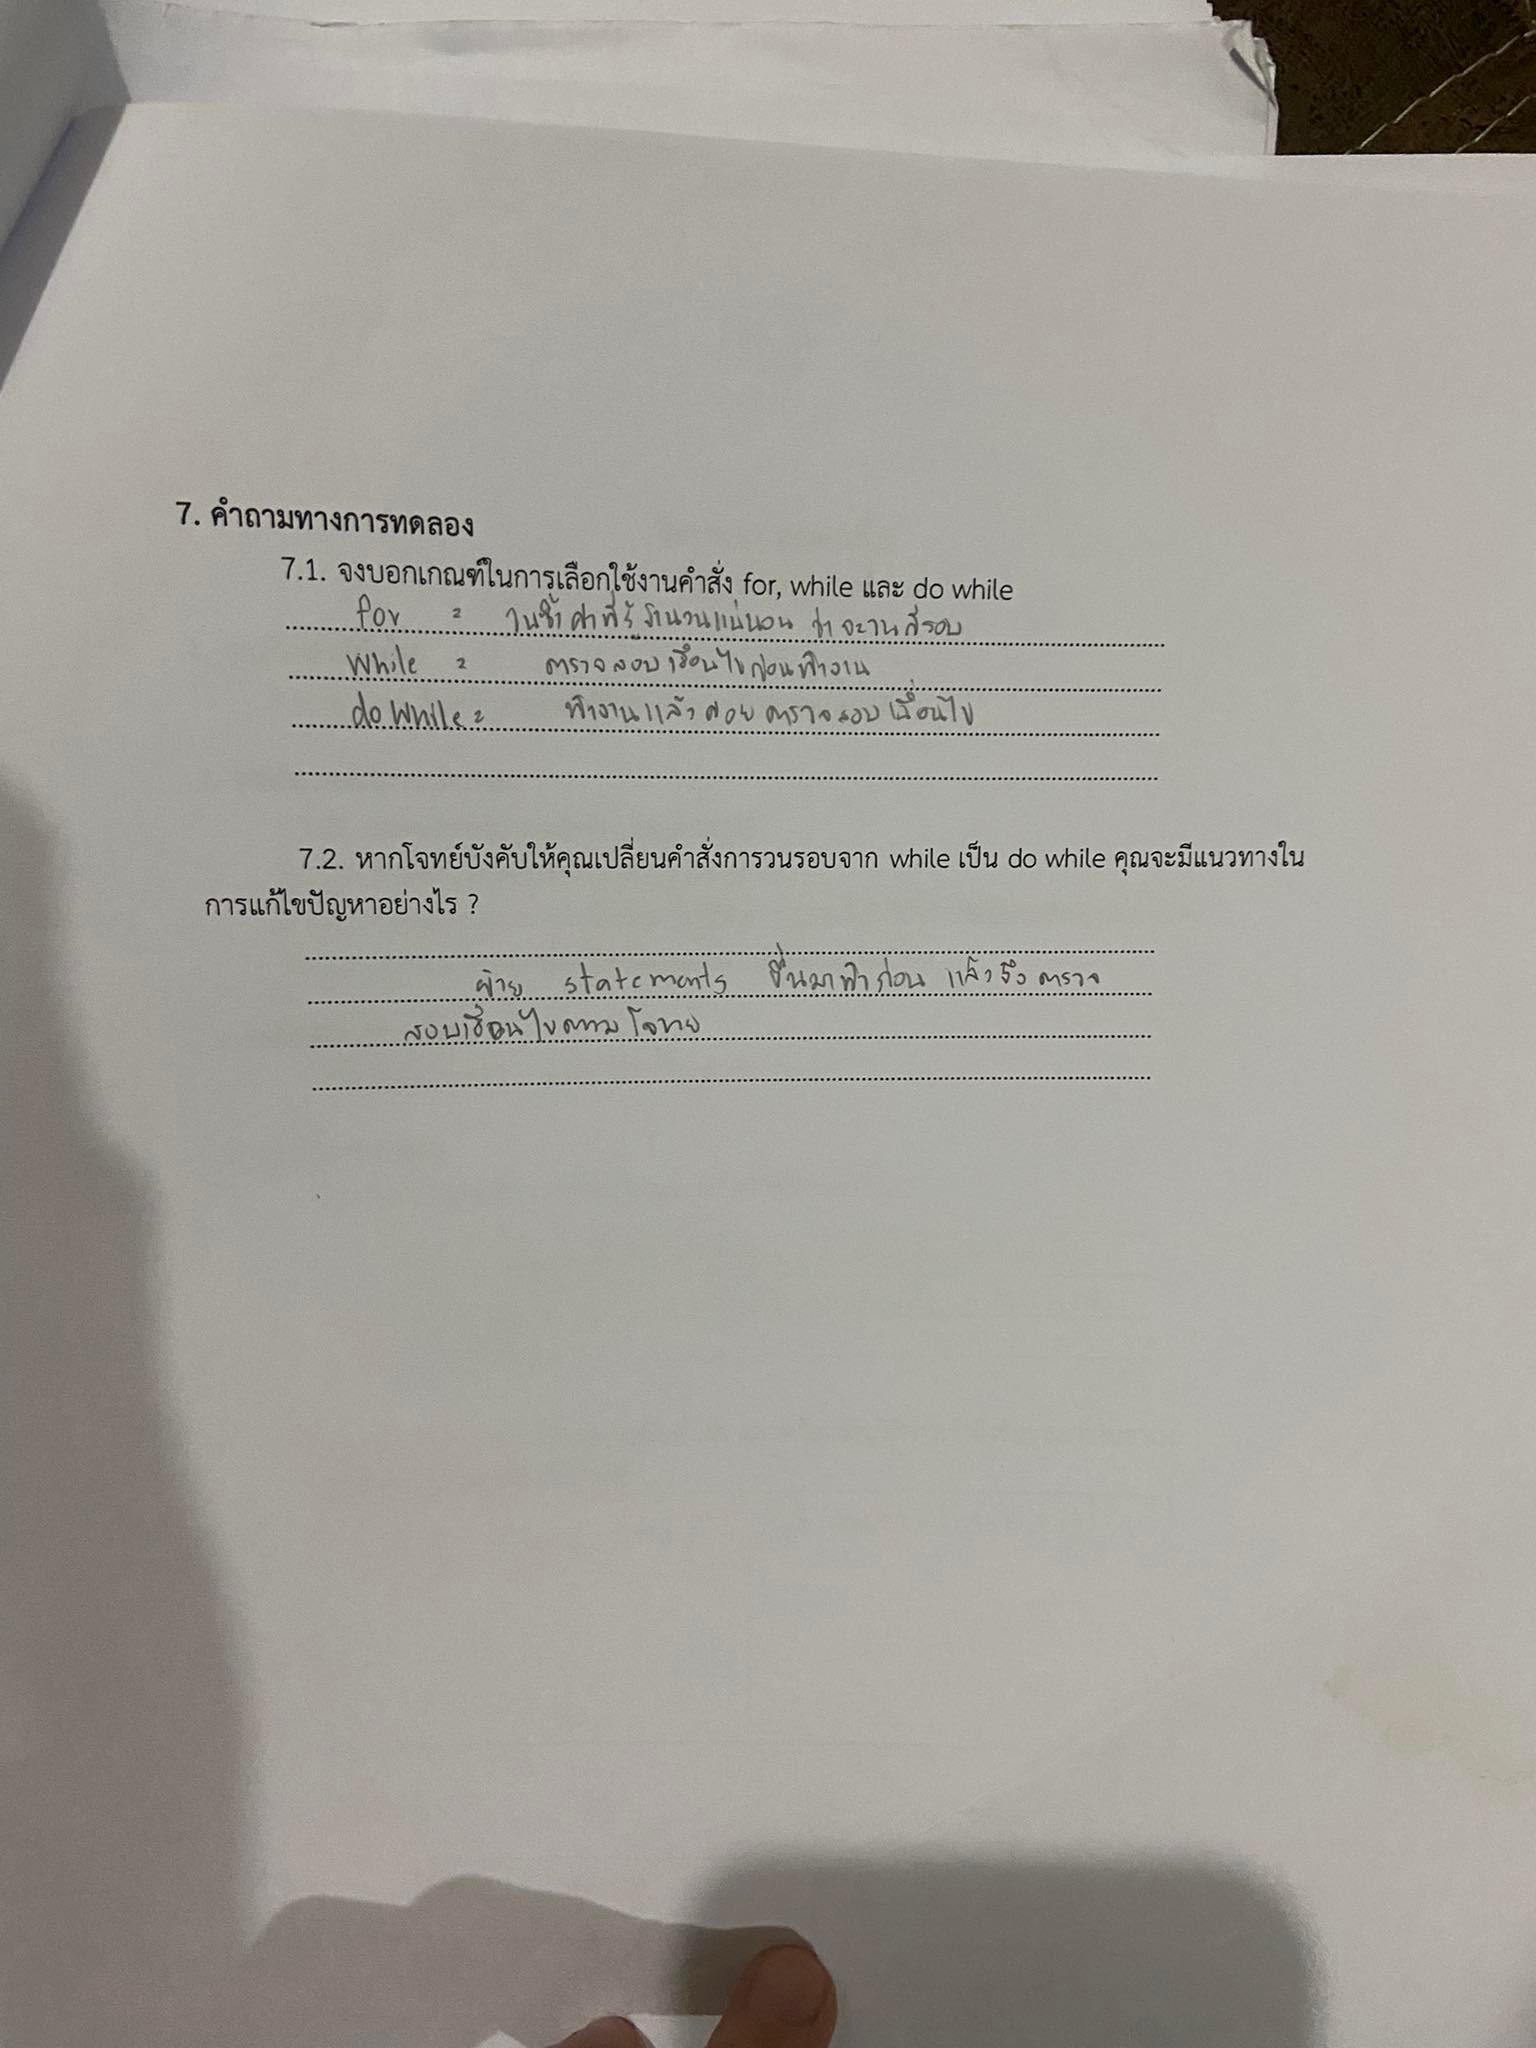 7. คำถามทางการทดลอง
7.1. จงบอกเกณฑ์ในการเลือกใช้งานคำสั่ง for, while และ do while
for = วนซ้ำค่าที่รู้จำนวนแน่นอน ว่าจะวนกี่รอบ
While = ตรวจสอบเงื่อนไขก่อนทำงาน
do While = ทำงานแล้วค่อยตรวจสอบเงื่อนไข
7.2. หากโจทย์บังคับให้คุณเปลี่ยนคำสั่งการวนรอบจาก while เป็น do while คุณจะมีแนวทางใน
การแก้ไขปัญหาอย่างไร ?
ย้าย statements ขึ้นมาทำก่อน แล้วจึงตรวจ
สอบเงื่อนไขตามโจทย์